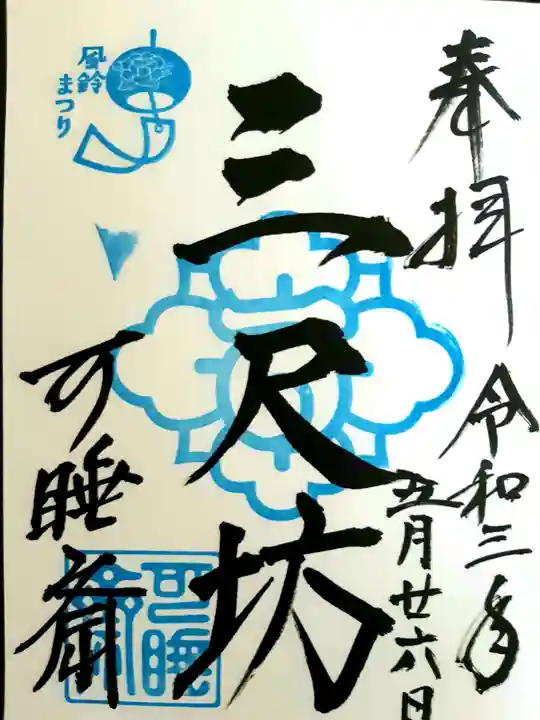 奉拝
令和三年
五月廿六日
三尺坊
可睡斎
風鈴
まつり
可睡
斎